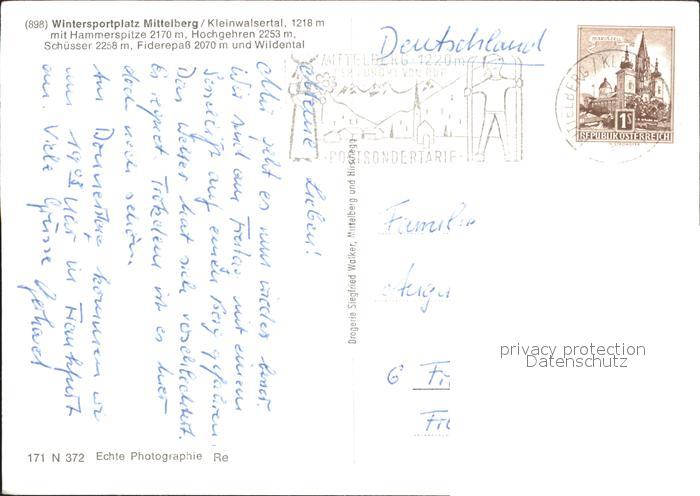 (898) Wintersportplatz Mittelberg / Kleinwalsertal, 1218 m
mit Hammerspitze 2170 m, Hochgehren 2253 m,
Schüsser 2258 m, Fiderepaß 2070 m und Wildental
Meine Lieben!
Mir geht es nun wieder besser.
Wir sind am Freitag mit einem
Sessellift auf einen Berg gefahren.
Das Wetter hat sich verschlechtert.
Es regnet. Trotzdem ist es hier
doch noch schön.
Am Donnerstag kommen wir
um 19 Uhr in Frankfurt
an. Viele Grüsse Gerhard
171 N 372 Echte Photographie Re
Drogerie Siegfried Walker, Mittelberg und Hirschegg
Deutschland
MITTELBERG 1220m
POSTSONDERTARIF
MITTELBERG / KL
MARIAZELL
1S
REPUBLIK ÖSTERREICH
Familie
privacy protection
Datenschutz